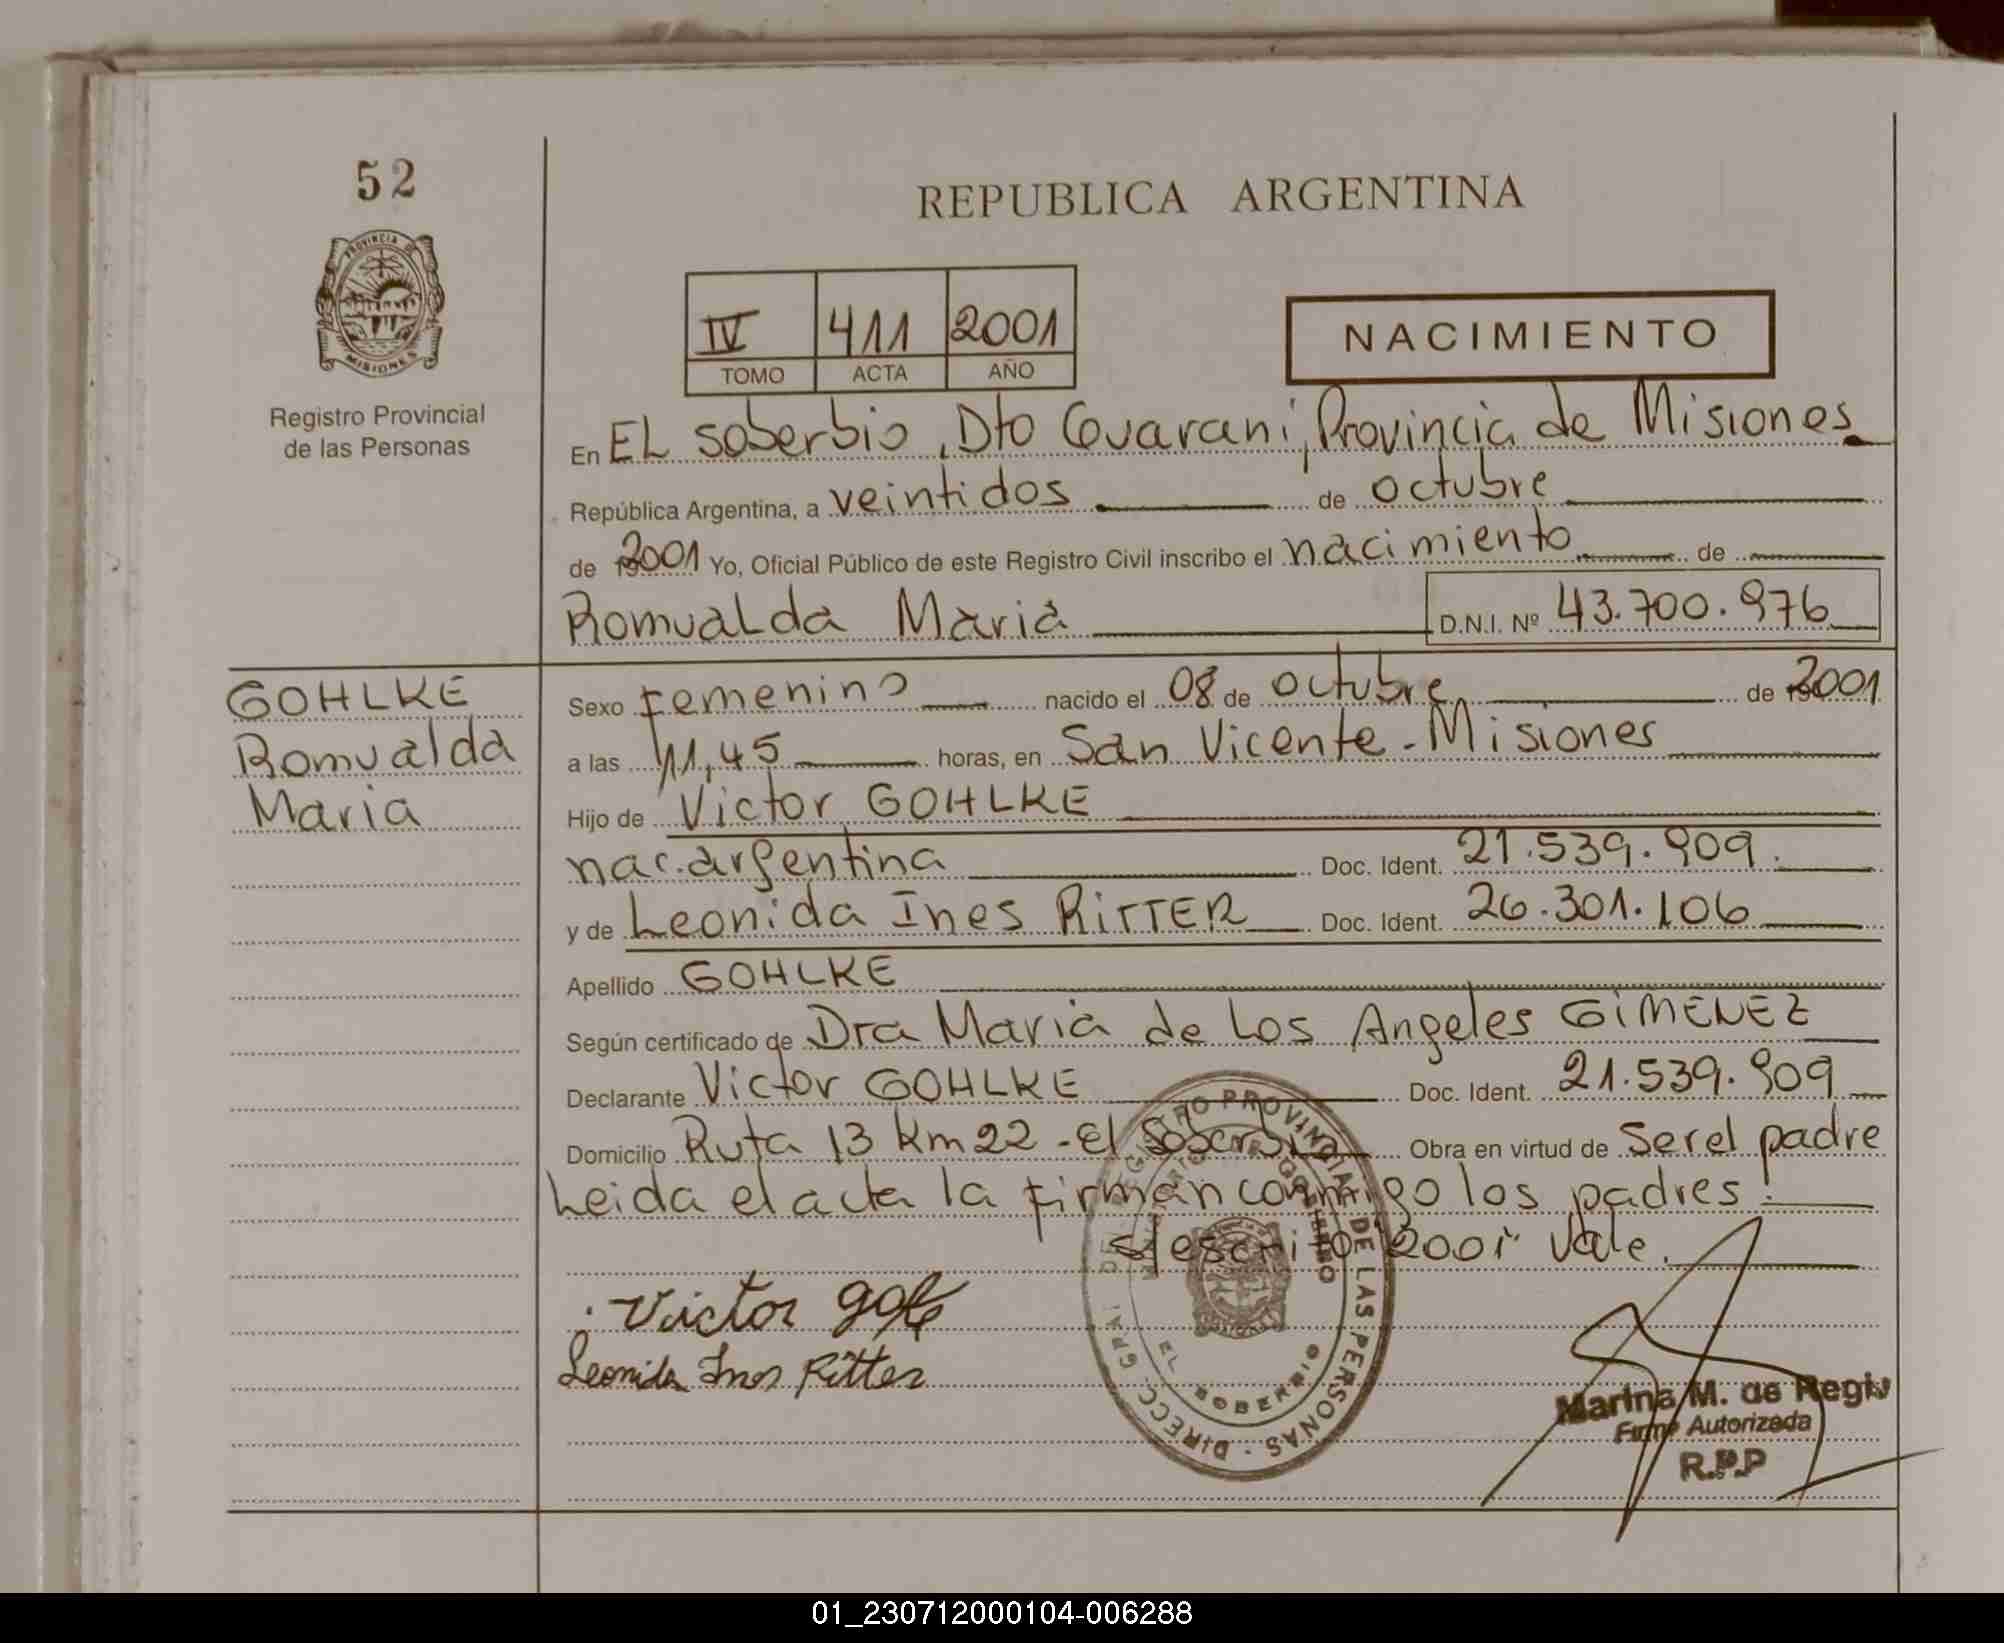 52
REPUBLICA ARGENTINA
PROVINCIA DE
MISIONES
Registro Provincial
de las Personas
IV 411 2001
TOMO ACTA AÑO
NACIMIENTO
En EL soberbio, Dto Guarani, Provincia de Misiones
República Argentina, a veintidos de octubre
de 2001 Yo, Oficial Público de este Registro Civil inscribo el nacimiento de
Romualda Maria D.N.I. Nº 43.700.976
GOHLKE
Romualda
Maria
Sexo Femenino nacido el 08 de octubre de 2001
a las 11,45 horas, en San Vicente - Misiones
Hijo de Victor GOHLKE
nac. argentina Doc. Ident. 21.539.909
y de Leonida Ines RITTER Doc. Ident. 26.301.106
Apellido GOHLKE
Según certificado de Dra Maria de Los Angeles GIMENEZ
Declarante Victor GOHLKE Doc. Ident. 21.539.909
Domicilio Ruta 13 Km 22 - El Soberbio Obra en virtud de ser el padre
Leida el acta la firman conmigo los padres!
s/escrito "2001" Vale.
Victor
Leonida Ines Ritter
DIRECC. GRAL DEL REGISTRO PROVINCIAL DE LAS PERSONAS
MINISTERIO DE GOBIERNO
EL SOBERBIO
Marina M. de
Firma Autorizada
R.P.P
01_230712000104-006288